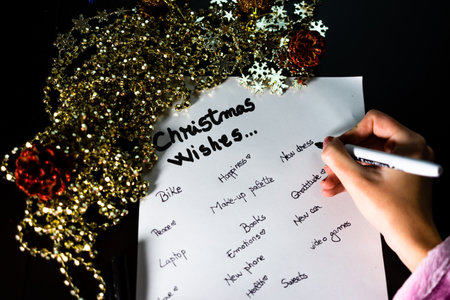 Christmas
Wishes...
Bike
Peace ♥
Laptop
Happiness ♥
Make-up palette
Books
Emotions ♥
New phone
Health ♥
New dress
Gratitude ♥
New car
video games
Sweets